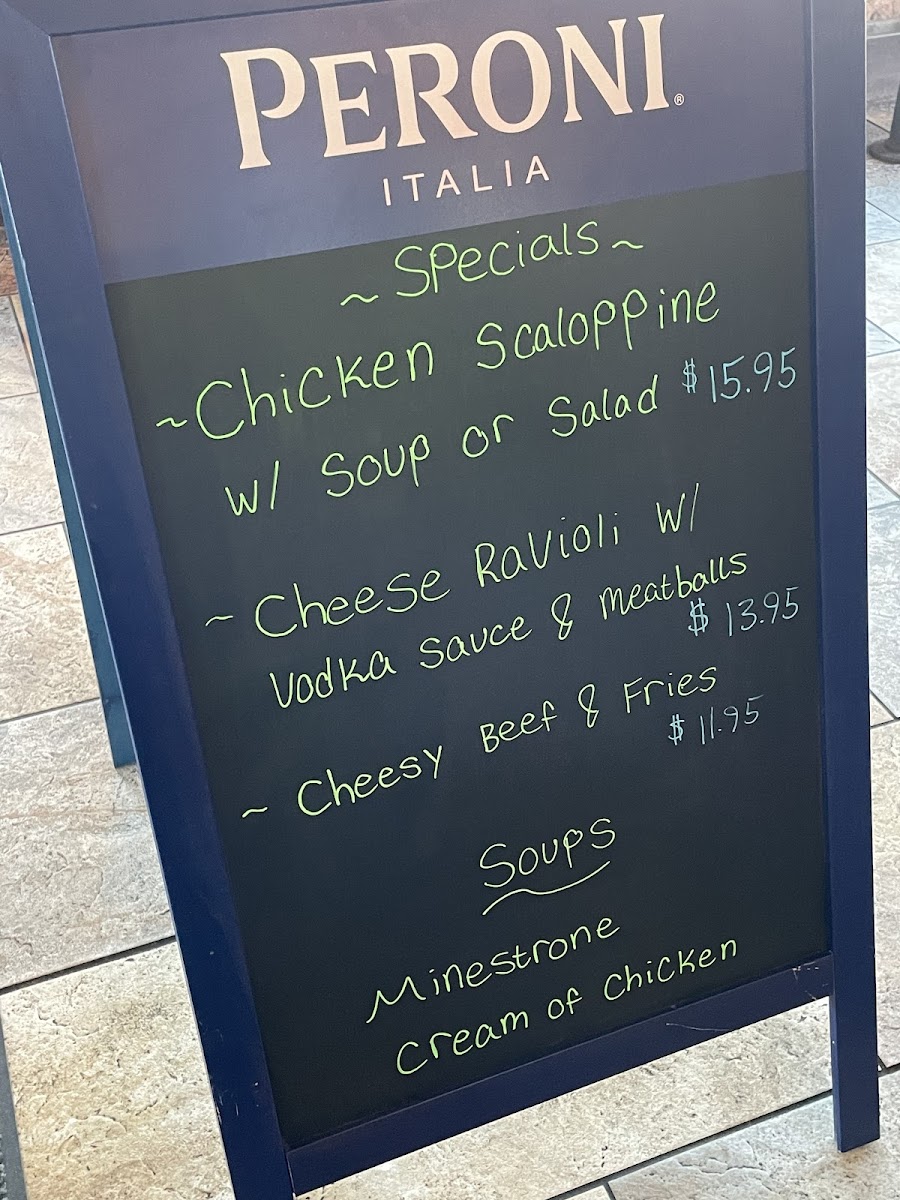 PERONI®
ITALIA
~ Specials ~
~Chicken Scaloppine
w/ Soup or Salad $15.95
~ Cheese Ravioli w/
Vodka Sauce & Meatballs
$ 13.95
~ Cheesy Beef & Fries
$ 11.95
Soups
Minestrone
Cream of Chicken